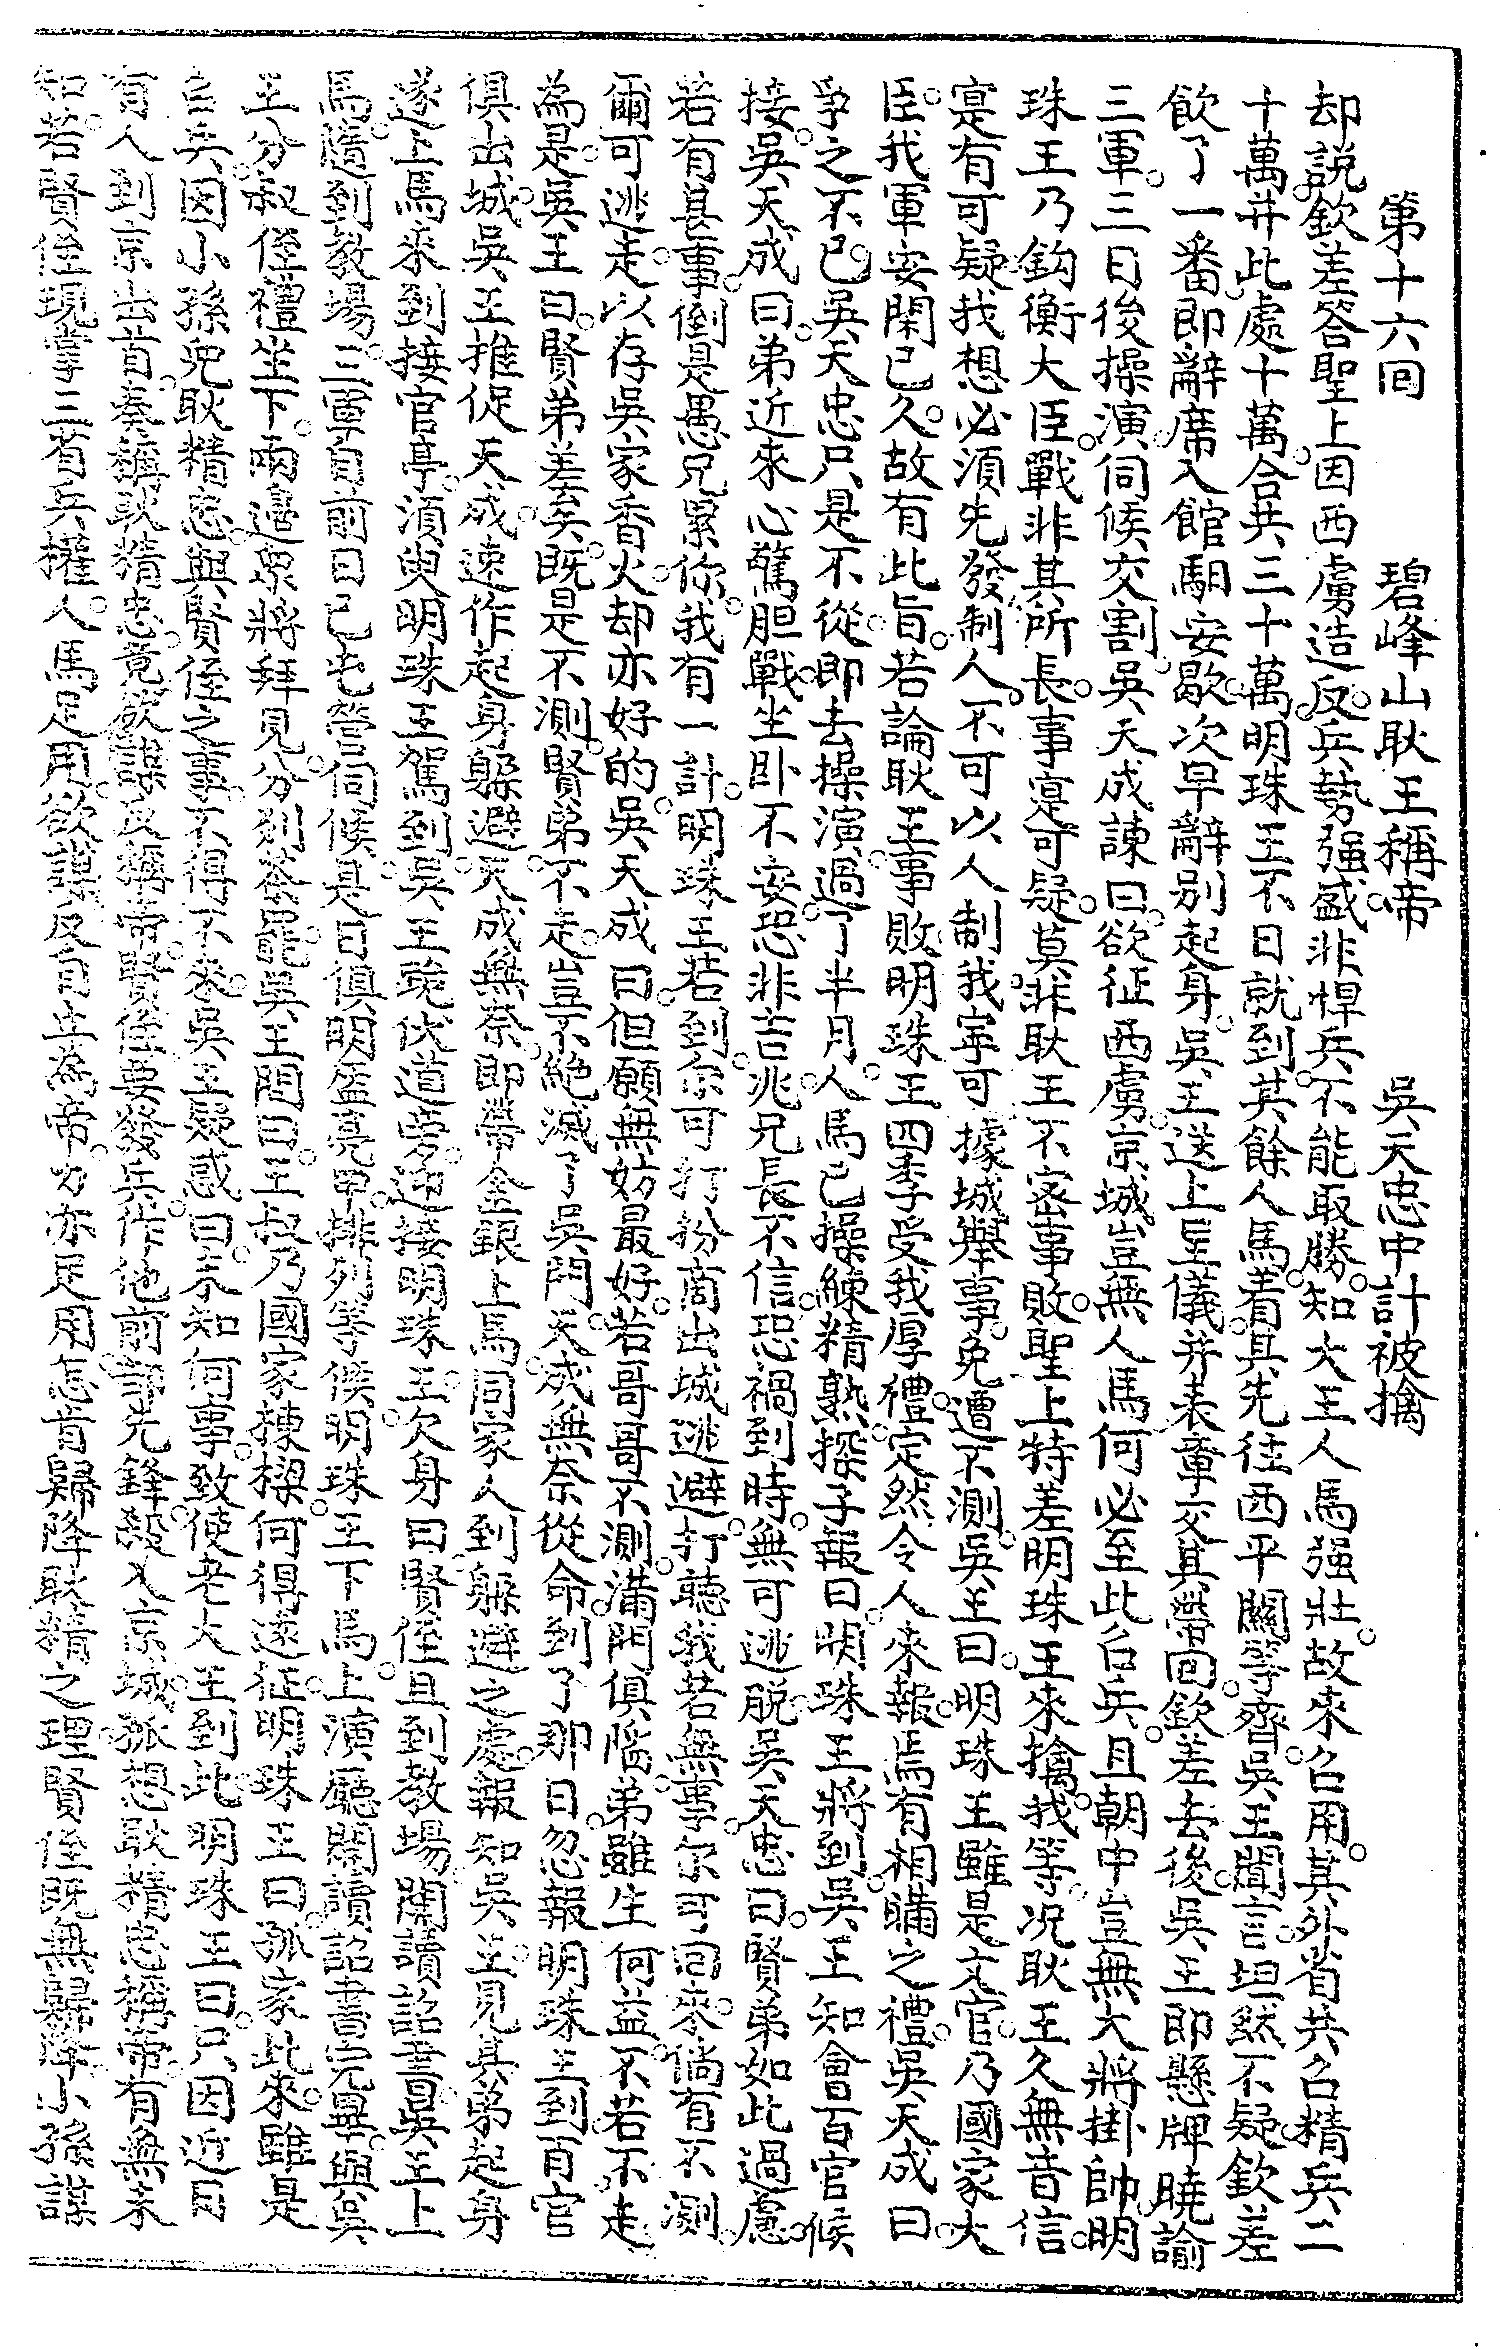 第十六回　碧峰山耿王稱帝　吳天忠中計被擒
却說欽差答聖上因西虜造反。兵勢强盛。非悍兵不能取勝。知大王人馬强壯。故來召用。其外省共召精兵二
十萬。并此處十萬。合共三十萬。明珠王不日就到。其餘人馬着其先徃西平關等齊。吳王聞言。坦然不疑。欽差
飲了一番。即辭席入館馹安歇。次早辭別起身。吳王送上呈儀。并表章交其帶回。欽差去後。吳王即懸牌曉諭
三軍。三日後操演。伺候交割。吳天成諫曰。欲征西虜。京城豈無人馬。何必至此召兵。且朝中豈無大將掛帥。明
珠王乃鈞衡大臣。戰非其所長。事寔可疑。莫非耿王不密事敗。聖上特差明珠王來擒我等。况耿王久無音信。
寔有可疑。我想必須先發制人。不可以人制我。寧可據城舉事。免遭不測。吳王曰。明珠王雖是文官。乃國家大
臣。我軍安閑已久。故有此旨。若論耿王事敗。明珠王四季受我厚禮。定然令人來報。焉有相瞞之禮。吳天成曰。
爭之不已。吳天忠只是不從。即去操演。過了半月。人馬已操練精熟。探子報曰。明珠王將到。吳王知會百官候
接。吳天成曰。弟近來心驚胆戰。坐卧不安。恐非吉兆。兄長不信。恐禍到時。無可逃脫。吳天忠曰。賢弟如此過慮。
若有甚事。倒是愚兄累你。我有一計。明珠王若到。尔可打扮商出城逃避。打聽我若無事。尔可回來。倘有不測。
爾可逃走。以存吳家香火。却亦好的。吳天成曰。但願無妨最好。若哥哥不測。滿門俱陷。弟雖生何益。不若不走
為是。吳王曰。賢弟差矣。既是不測。賢弟不走。豈不絕滅了吳門。天成無奈從命。到了那日。忽報明珠王到。百官
俱出城。吳王推促天成。速作起身躲避。天成無奈。即帶金銀上馬。同家人到躲避之處。報知吳王。見其弟起身
遂上馬來到接官亭。須臾明珠王駕到。吳王跪伏道旁迎接。明珠王欠身曰。賢侄且到教場。開讀詔書。吳王上
馬。隨到教場。三軍自前日已屯營伺候。是日俱明盔亮甲。排列等候。明珠王下馬。上演廳開讀詔書完畢。與吳
王分叔侄禮坐下。兩邊衆將拜見分別茶罷。吳王問曰。王叔乃國家棟樑。何得遠征。明珠王曰。孤家此來。雖是
召兵。因小孫兒耿精忠。與賢侄之事。不得不來。吳王疑惑曰。未知何事。致使老大王到此。明珠王曰。只因近日
有人到京出首。奏稱耿精忠。竟欲謀反稱帝。賢侄要發兵作他前部先鋒殺入京城。孤想耿精忠稱帝。有無未
知。若賢侄現掌三省兵權。人馬足用。欲謀反自立為帝。力亦足用。怎肯歸降耿精之理。賢侄既無歸降小孫謀